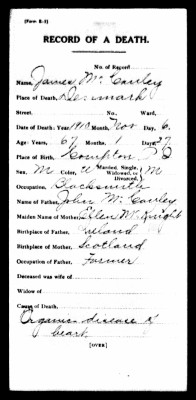 [Form R-3]
RECORD OF A DEATH.
No. of Record
Name, James Mc Cauley
Place of Death, Denmark
Street. No. Ward,
Date of Death: Year 1910 Month, Nov Day, 6
Age: Years, 67 Months, 1 Days, 27
Place of Birth, Compton P Q
Sex, M Color, W Married, Single, Widowed, or Divorced, M
Occupation,
Name of Father, John Mc Cauley
Maiden Name of Mother, Ellen Mc Knight
Birthplace of Father, Ireland
Birthplace of Mother, Scotland
Occupation of Father, Farmer
Deceased was wife of
Widow of
Cause of Death,
Organic disease of
heart
[OVER]